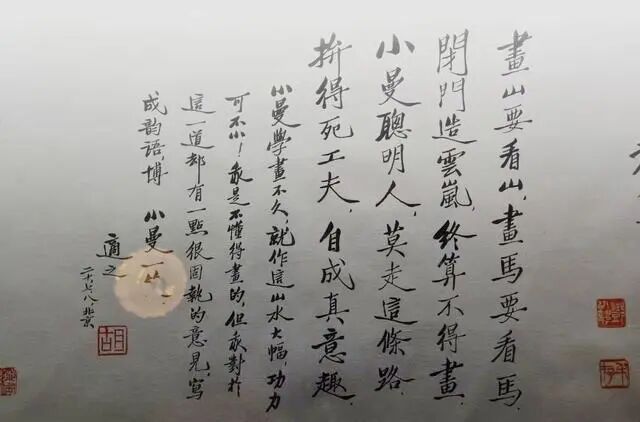 畫山要看山，畫馬要看馬，
閉門造雲嵐，終算不得畫，
小曼聰明人，莫走這條路，
拚得死工夫，自成真意趣，
小曼學畫不久，就作這山水大幅，功力
可不小！我是不懂得畫的，但我對於
這一道却有一點很固執的意見，寫
成韵語，博
小曼一笑
適之
二十，七，八，北京
胡